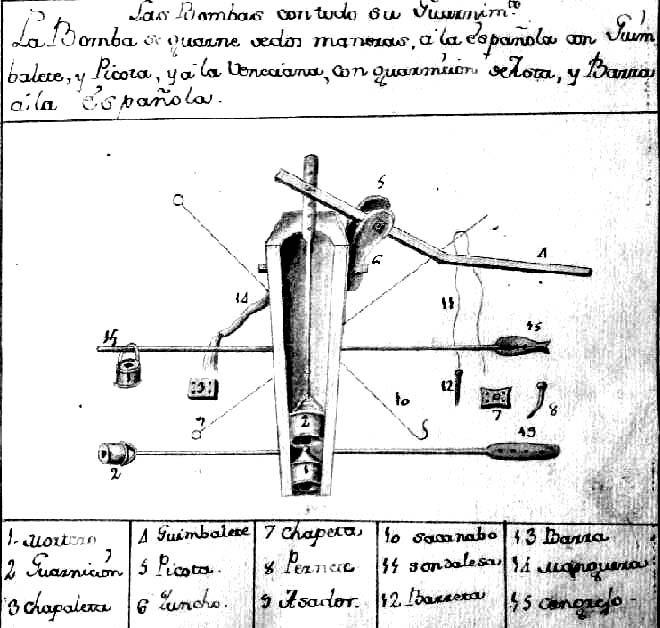 Las Bombas con todo su Guarnim.to
La Bomba se guarne de dos maneras, á la española con Guim
balete, y Picota, y á la Veneciana, con guarnicion de Zota, y Barra
á la española.
5
6
4
14
11
14
15
1
3
12
7
8
7
10
2
2
1
13
1 Mortero
4 Guimbalete
7 chapeta
10 sacanabo
13 Barra
2 Guarnición
5 Picota.
8 Pernete
11 sondalesa
14 manguera
3 chapaleta
6 Zuncho.
9 Asador.
12 Barreta
15 congrejo